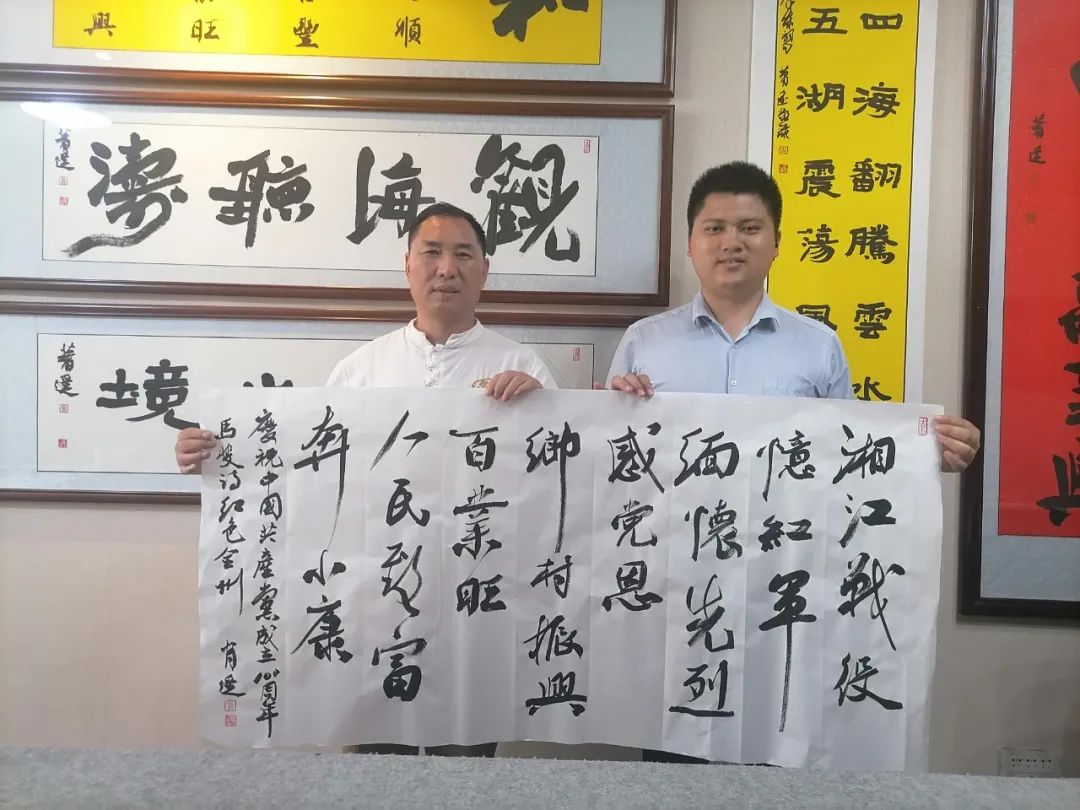 湘江戰役
憶紅軍
緬懷先烈
感党恩
鄉村振興
百業旺
人民致富
奔小康
慶祝中國共產黨成立100周年
馬俊詩红色全州 肖選
觀海聽濤
肖選
境
肖選
四海翻騰雲水
五湖震荡風
順
豐
旺
興
肖選